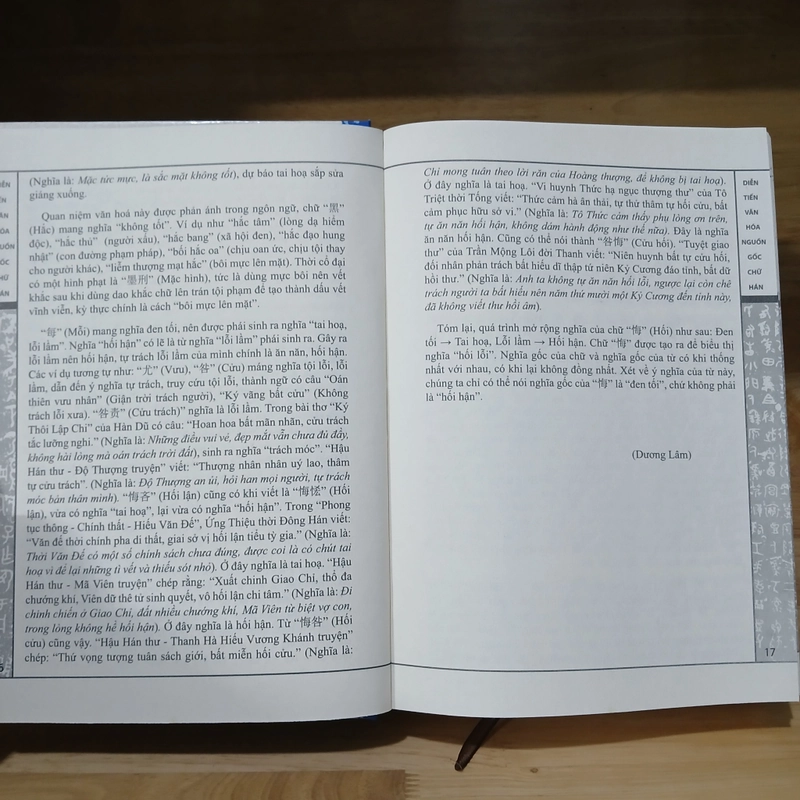 (Nghĩa là: Mặc tức mực, là sắc mặt không tốt), dự báo tai hoạ sắp sửa
giáng xuống.
Quan niệm văn hoá này được phản ánh trong ngôn ngữ, chữ “黑”
(Hắc) mang nghĩa “không tốt”. Ví dụ như “hắc tâm” (lòng dạ hiểm
độc), “hắc thủ” (người xấu), “hắc bang” (xã hội đen), “hắc đạo hung
nhật” (con đường phạm pháp), “bối hắc oa” (chịu oan ức, chịu tội thay
cho người khác), “hiềm thượng mạt hắc” (bôi mực lên mặt). Thời cổ đại
có một hình phạt là “墨刑” (Mặc hình), tức là dùng mực bôi nên vết
khắc sau khi dùng dao khắc chữ lên trán tội phạm để tạo thành dấu vết
vĩnh viễn, kỳ thực chính là cách “bôi mực lên mặt”.
“每” (Mỗi) mang nghĩa đen tối, nên được phái sinh ra nghĩa “tai hoạ,
lỗi lầm”. Nghĩa “hối hận” có lẽ là từ nghĩa “lỗi lầm” phái sinh ra. Gây ra
lỗi lầm nên hối hận, tự trách lỗi lầm của mình chính là ăn năn, hối hận.
Các ví dụ tương tự như: “尤” (Vưu), “咎” (Cửu) máng nghĩa tội lỗi, lỗi
lầm, dẫn đến ý nghĩa tự trách, truy cứu tội lỗi, thành ngữ có câu “Oán
thiên vưu nhân” (Giận trời trách người), “Ký vãng bất cửu” (Không
trách lỗi xưa). “咎责” (Cửu trách)” nghĩa là lỗi lầm. Trong bài thơ “Kỷ
Thôi Lập Chi” của Hàn Dũ có câu: “Hoan hoa bất mãn nhãn, cửu trách
tắc lưỡng nghi.” (Nghĩa là: Những điều vui vẻ, đẹp mắt vẫn chưa đủ đầy,
không hài lòng mà oán trách trời đất), sinh ra nghĩa “trách móc”. “Hậu
Hán thư - Độ Thượng truyện” viết: “Thượng nhân nhân uý lao, thâm
tự cửu trách”. (Nghĩa là: Độ Thượng an ủi, hỏi han mọi người, tự trách
móc bản thân mình). “悔吝” (Hối lận) cũng có khi viết là “悔恡” (Hối
lận), vừa có nghĩa “tai hoạ”, lại vừa có nghĩa “hối hận”. Trong “Phong
tục thông - Chính thất - Hiếu Văn Đế”, Ứng Thiệu thời Đông Hán viết:
“Văn đế thời chính pha di thất, giai sở vị hối lận tiểu tỳ gia.” (Nghĩa là:
Thời Văn Đế có một số chính sách chưa đúng, được coi là có chút tai
hoạ vì để lại những tì vết và thiếu sót nhỏ). Ở đây nghĩa là tai hoạ. “Hậu
Hán thư - Mã Viên truyện” chép rằng: “Xuất chinh Giao Chỉ, thổ đa
chướng khí, Viên dữ thê tử sinh quyết, vô hối lận chi tâm.” (Nghĩa là: Đi
chinh chiến ở Giao Chỉ, đất nhiều chướng khí, Mã Viên từ biệt vợ con,
trong lòng không hề hối hận). Ở đây nghĩa là hối hận. Từ “悔咎” (Hối
cửu) cũng vậy. “Hậu Hán thư - Thanh Hà Hiếu Vương Khánh truyện”
chép: “Thứ vọng tượng tuân sách giới, bất miễn hối cửu.” (Nghĩa là:
Chỉ mong tuân theo lời răn của Hoàng thượng, để không bị tai hoạ).
Ở đây nghĩa là tai hoạ. “Vi huynh Thức hạ ngục thượng thư” của Tô
Triệt thời Tống viết: “Thức cảm hà ân thái, tự thử thâm tự hối cửu, bất
cảm phục hữu sở vi.” (Nghĩa là: Tô Thức cảm thấy phụ lòng ơn trên,
tự ăn năn hối hận, không dám hành động như thế nữa). Đây là nghĩa
ăn năn hối hận. Cũng có thể nói thành “咎悔” (Cửu hối). “Tuyệt giao
thư” của Trần Mộng Lôi đời Thanh viết: “Niên huynh bất tự cửu hối,
đối nhân phản trách bất hiếu dĩ thập tử niên Kỷ Cương đáo tỉnh, bất dữ
hồi thư.” (Nghĩa là: Anh ta không tự ăn năn hối lỗi, ngược lại còn chê
trách người ta bất hiếu nên năm thứ mười một Kỷ Cương đến tỉnh này,
đã không viết thư hồi âm).
Tóm lại, quá trình mở rộng nghĩa của chữ “悔” (Hối) như sau: Đen
tối → Tai hoạ, Lỗi lầm → Hối hận. Chữ “悔” được tạo ra để biểu thị
nghĩa “hối lỗi”. Nghĩa gốc của chữ và nghĩa của từ có khi thống
nhất với nhau, có khi lại không đồng nhất. Xét về ý nghĩa của từ này,
chúng ta chỉ có thể nói nghĩa gốc của “悔” là “đen tối”, chứ không phải
là “hối hận”.
(Dương Lâm)
DIỄN
TIẾN
VĂN
HÓA
NGUỒN
GỐC
CHỮ
HÁN
17